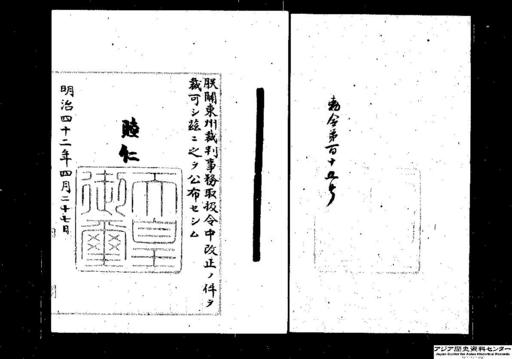 勅令第百十五号
朕關東州裁判事務取扱令中改正ノ件ヲ
裁可シ玆ニ之ヲ公布セシム
睦仁
天皇御璽
明治四十二年四月二十七日
アジア歴史資料センター
Japan Center for Asian Historical Records